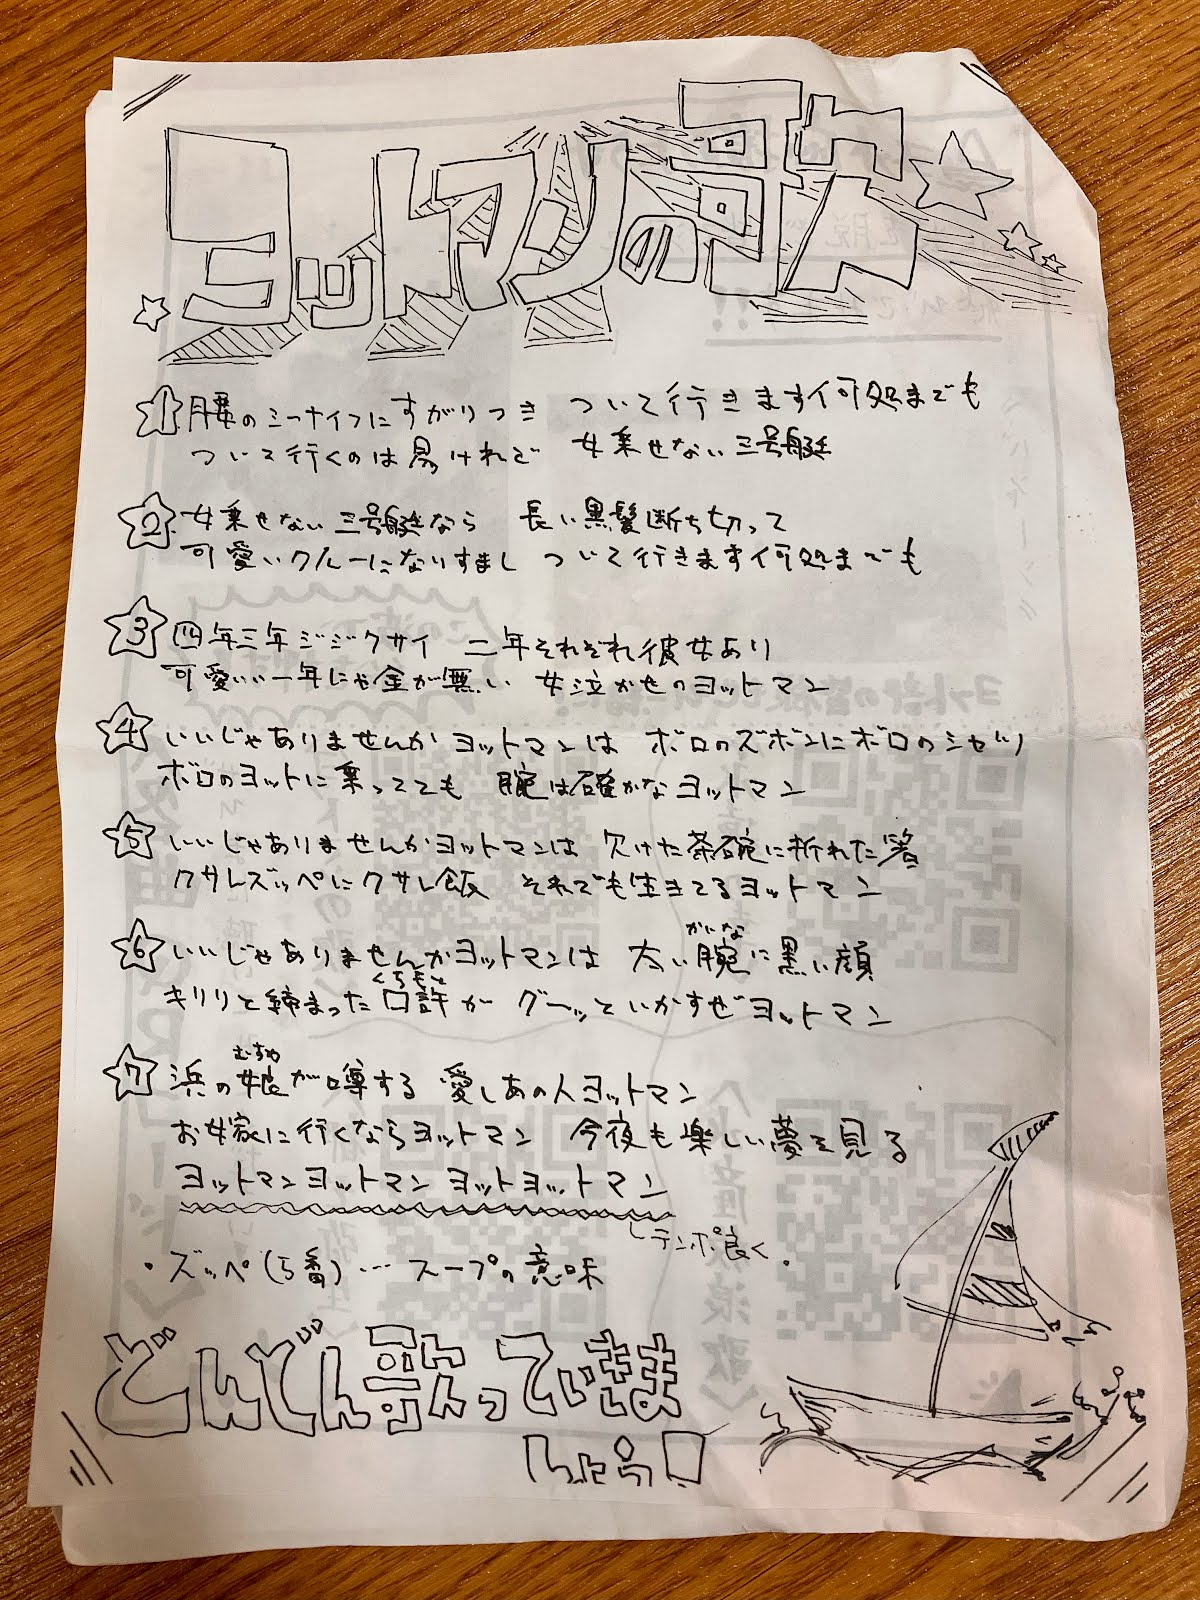 ヨットマンの歌
1 腰のシーナイフにすがりつき ついて行きます何処までも
ついて行くのは易けれど 女乗せない三号艇
2 女乗せない三号艇なら 長い黒髪断ち切って
可愛いクルーになりすまし ついて行きます何処までも
3 四年三年ジジクサイ 二年それぞれ彼女あり
可愛いい一年にゃ金が無い 女泣かせのヨットマン
4 いいじゃありませんかヨットマンは ボロのズボンにボロのシャツ
ボロのヨットに乗ってても 腕は確かなヨットマン
5 いいじゃありませんかヨットマンは 欠けた茶碗に折れた箸
クサレズッペにクサレ飯 それでも生きてるヨットマン
6 いいじゃありませんかヨットマンは 太い腕に黒い顔
かいな
キリリと締まった口許が グーッといかすぜヨットマン
くちもと
7 浜の娘が噂する 愛しあの人ヨットマン
むすめ
お嫁に行くならヨットマン 今夜も楽しい夢を見る
ヨットマンヨットマン ヨットヨットマン
テンポ良く
・ズッペ(5番)…スープの意味
どんどん歌っていきま
しょう!